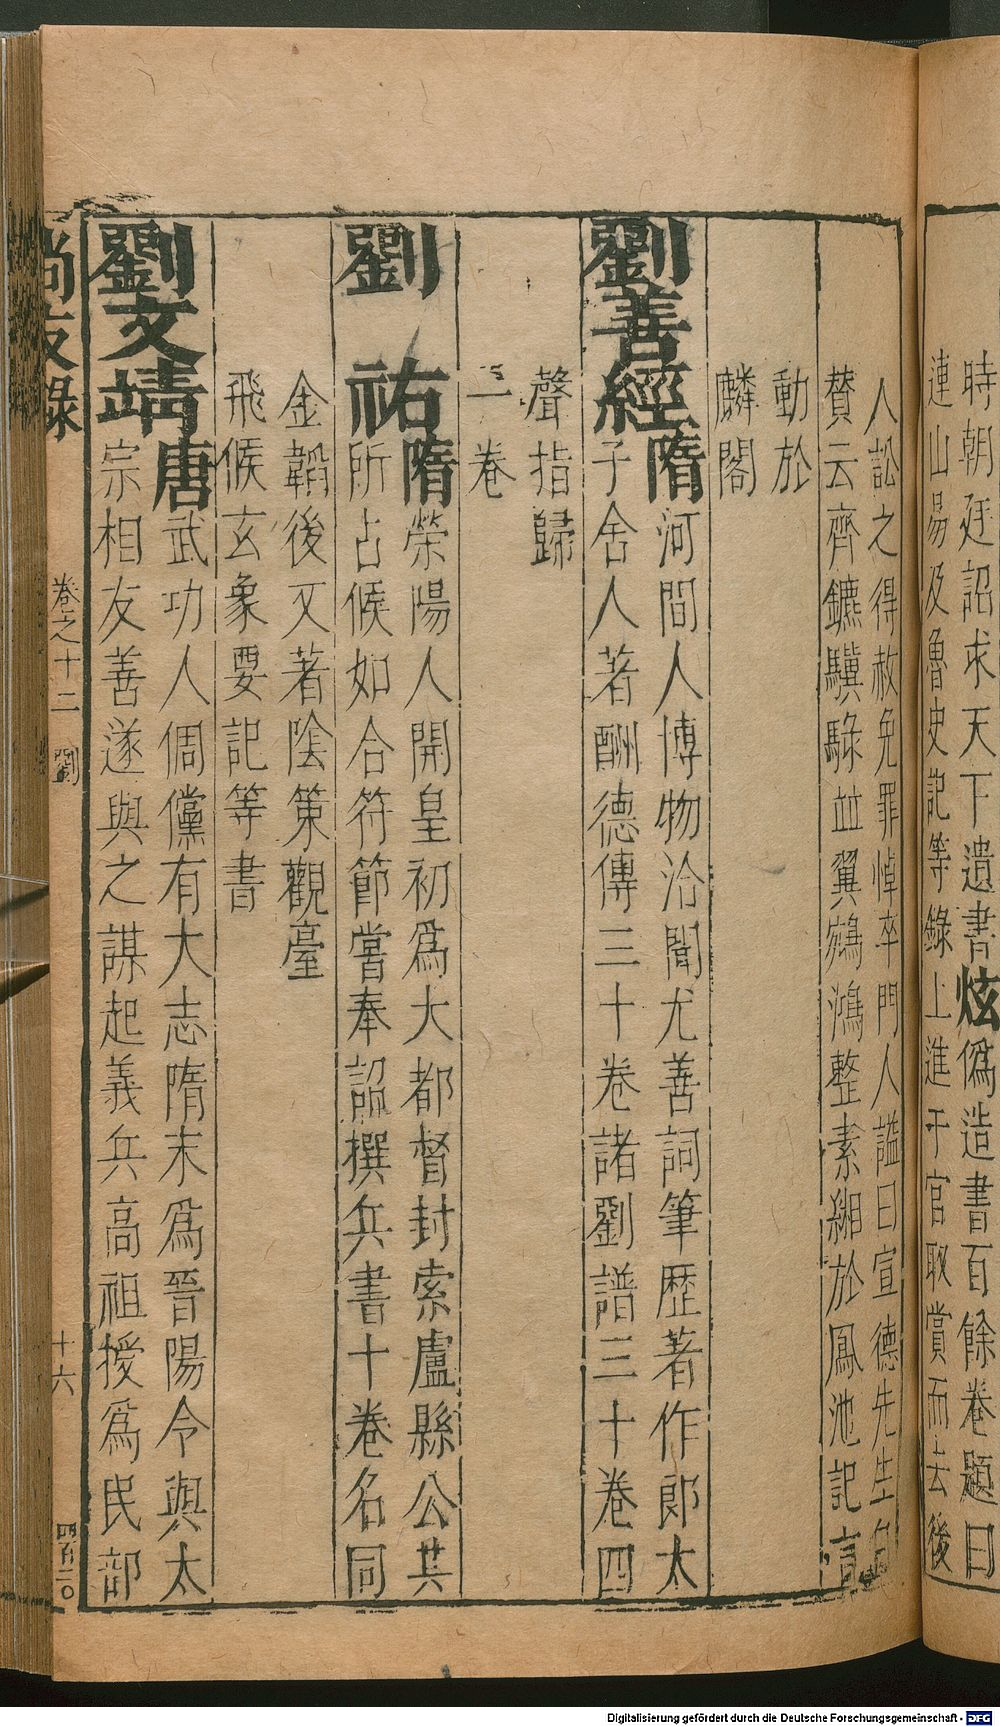 時朝廷詔求天下遺書炫僞造書百餘卷題曰
連山易及魯史記等錄上進于官取賞而去後
人訟之得赦免罪悼卒門人諡曰宣德先生
賛云齊鑣驥騄並翼鵷鴻整素緗於鳳池記言
動於
麟閣
劉善經隋河間人博物洽聞尤善詞筆歷著作郎太
子舍人著酬德傳三十卷諸劉譜三十卷四
聲指歸
一卷
劉祐隋滎陽人開皇初爲大都督封索盧縣公其
所占候如合符節嘗奉詔撰兵書十卷名同
金韜後又著陰策觀臺
飛候玄象要記等書
劉文靖唐武功人倜儻有大志隋末爲晉陽令與太
宗相友善遂與之謀起義兵高祖授爲民部
尚友錄
卷之十二
劉
十六
四百二〇
Digitalisierung gefördert durch die Deutsche Forschungsgemeinschaft - DFG